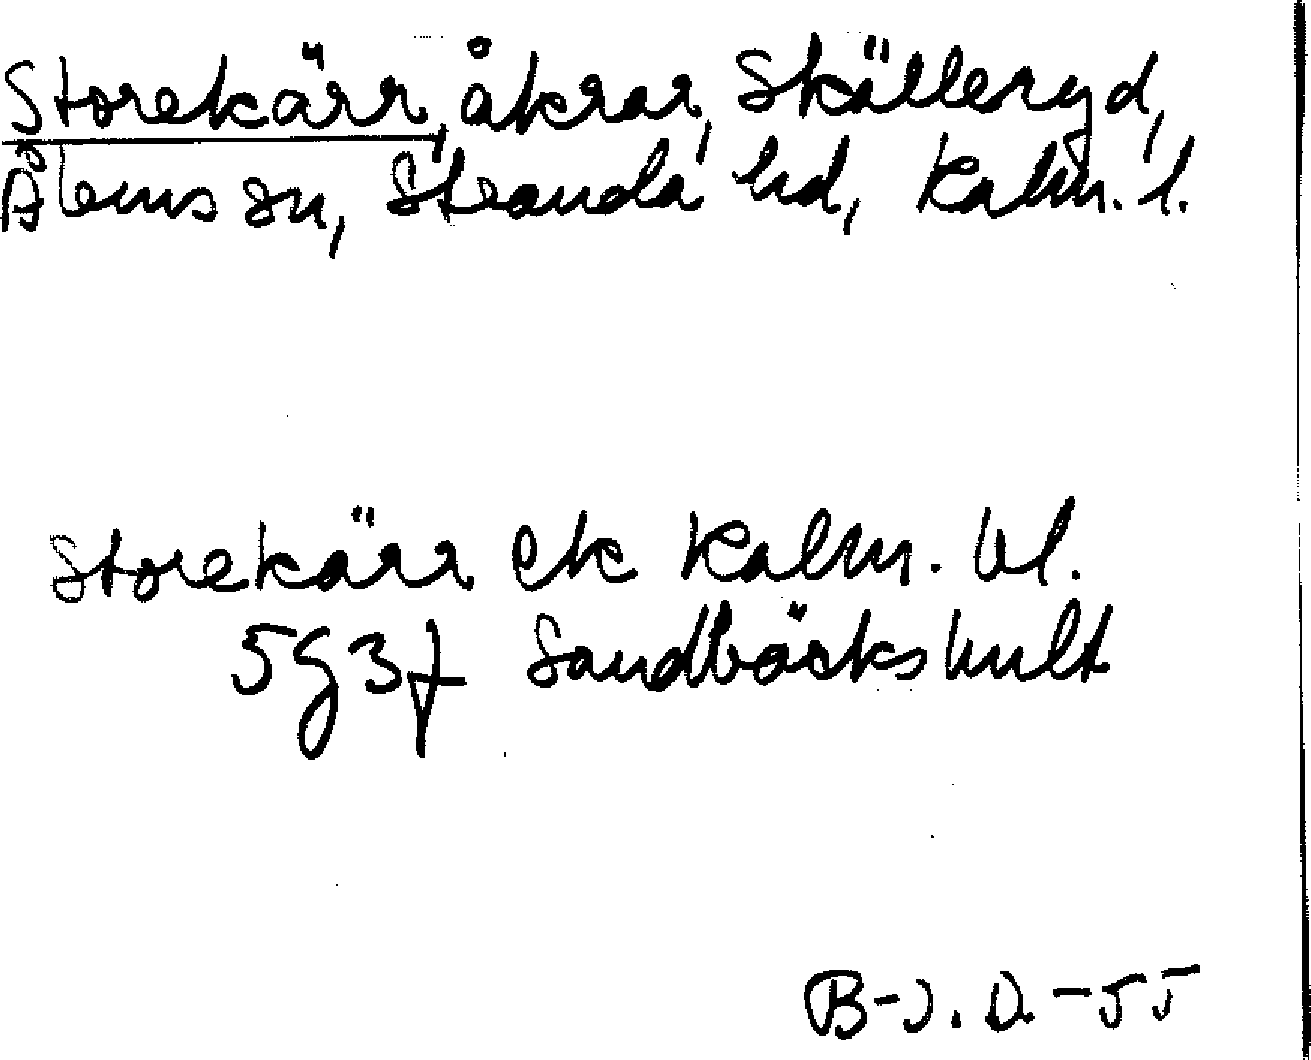 Storekärr, åkrar, Skälleryd,
Ålems sn, Stranda hd, Kalm. l.
Storekärr ek Kalm. bl.
5g3f Sandbäckshult
B-J. D. -55